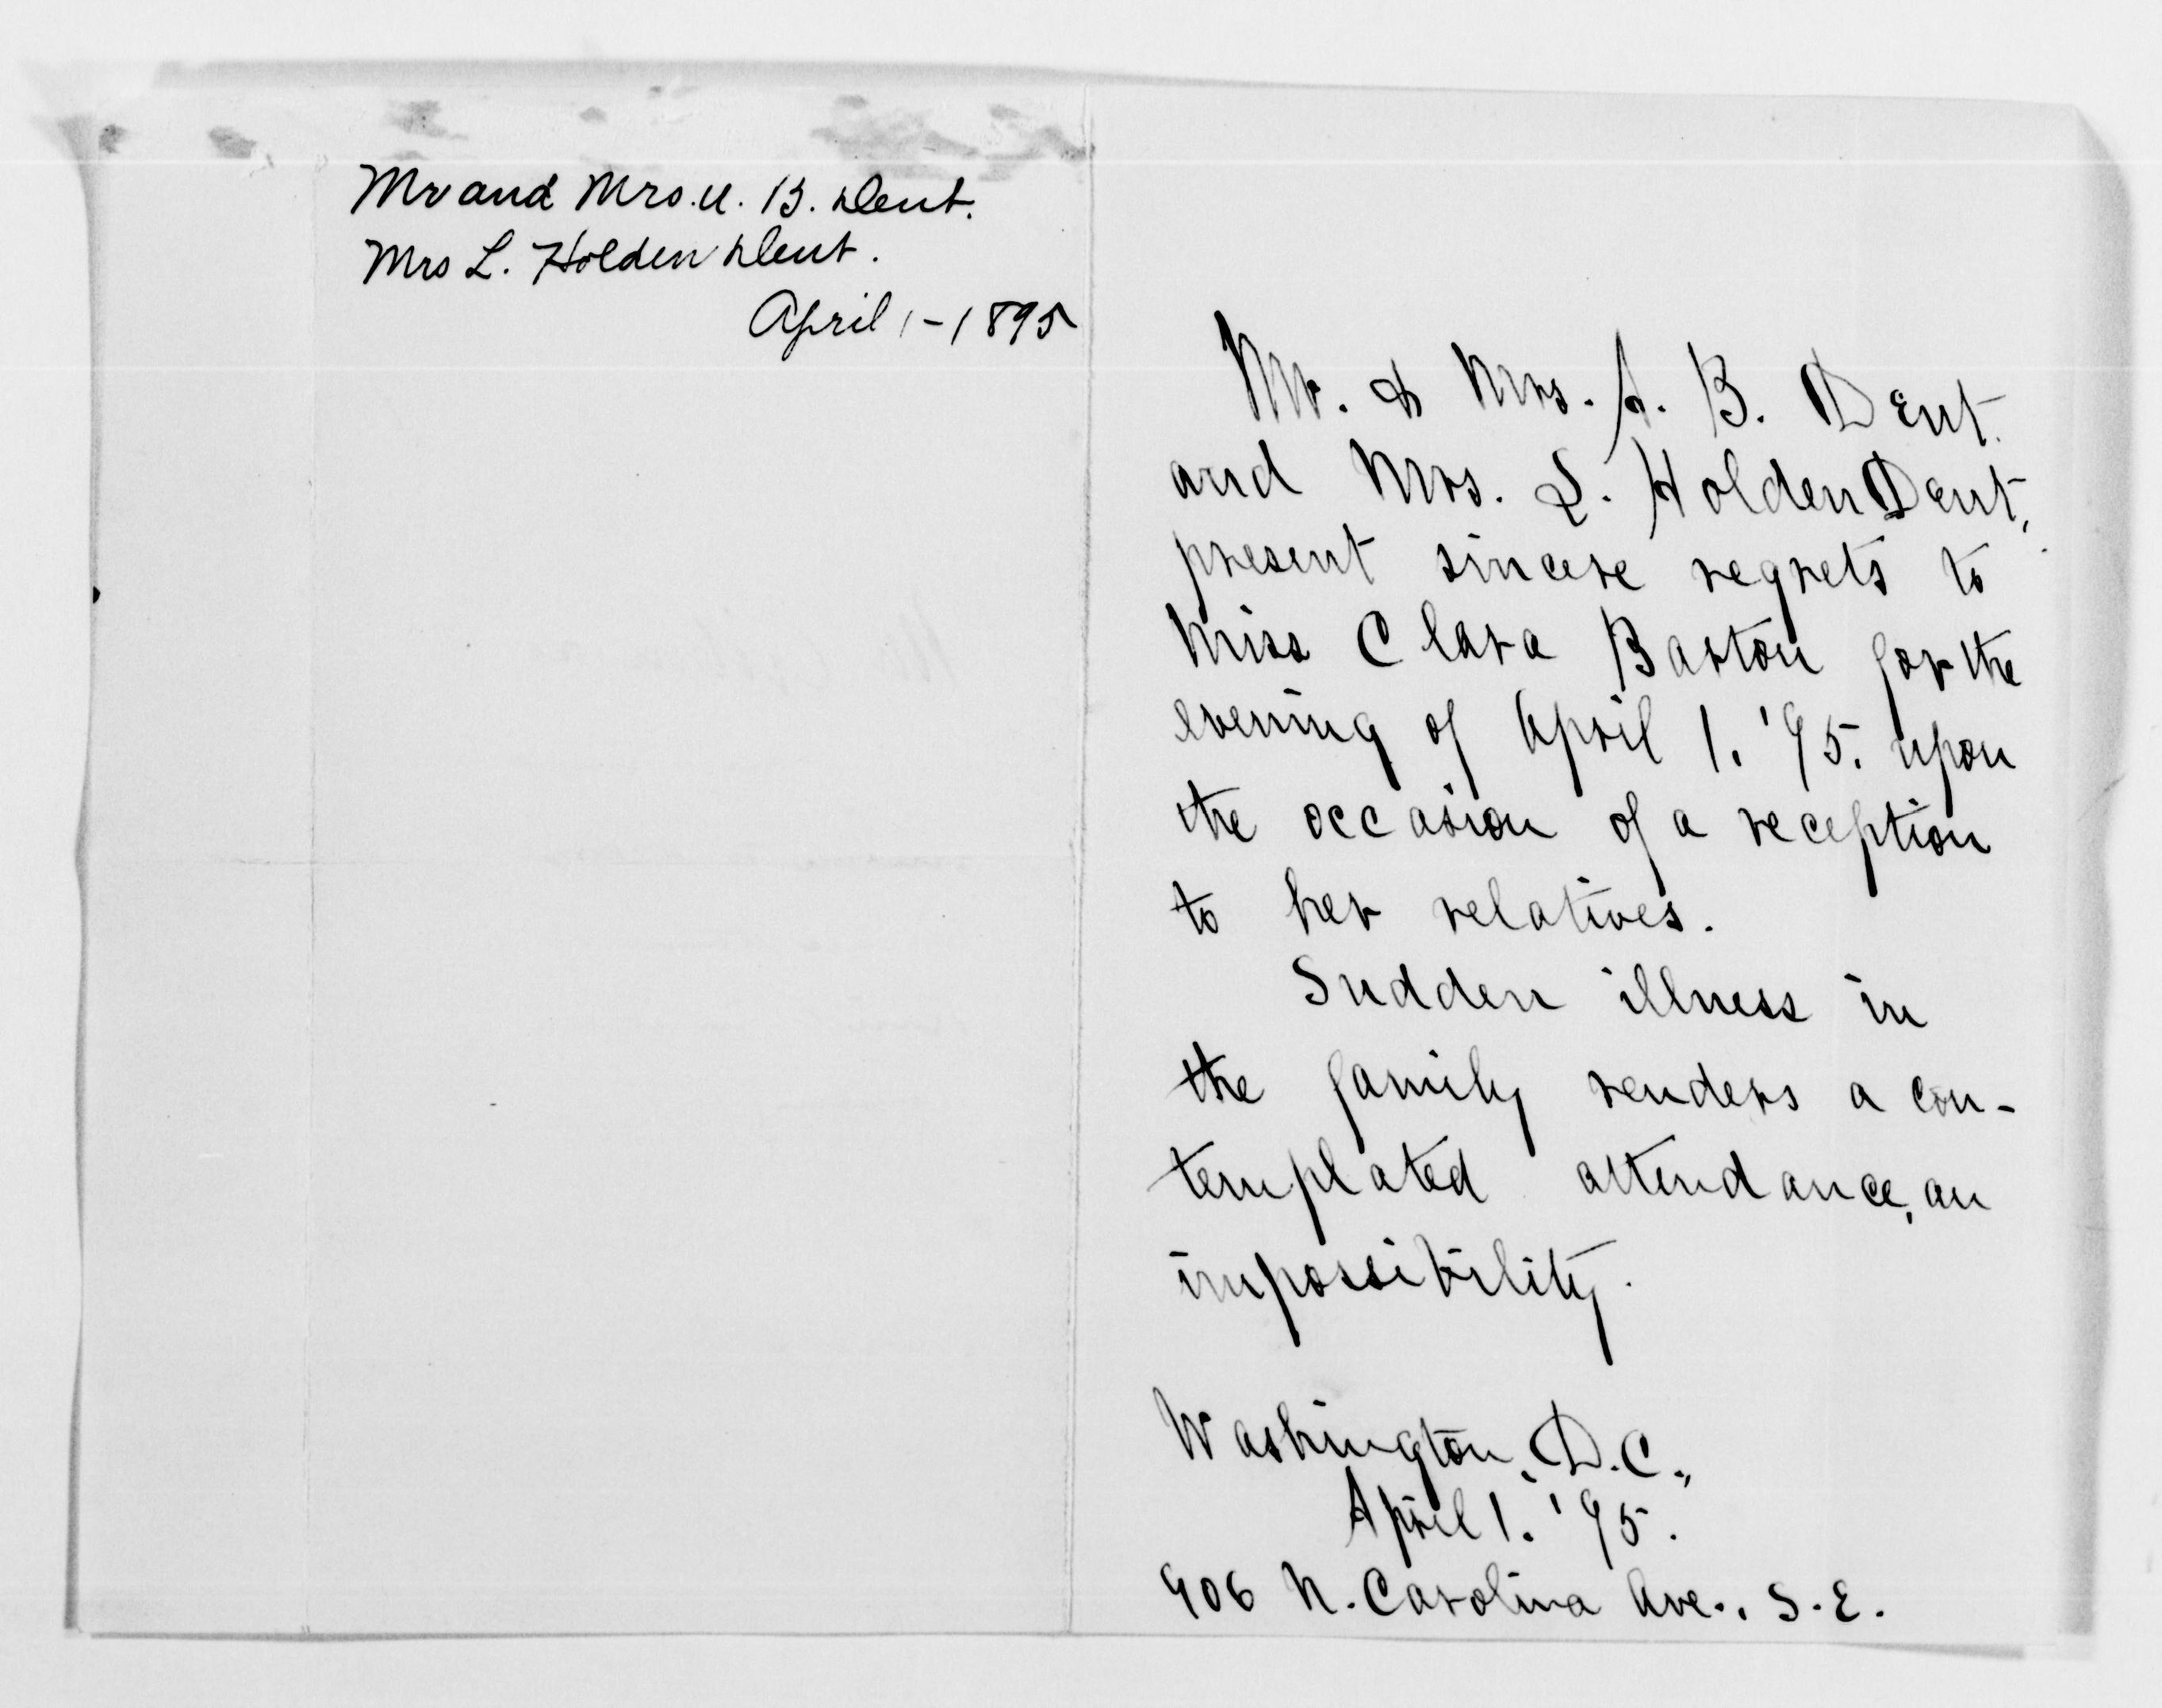 Mr and Mrs. A. B. Dent.
Mrs L. Holden Dent.
April 1-1895
Mr. & Mrs. A. B. Dent
and Mrs. L. Holden Dent,
present sincere regrets to
Miss Clara Barton for the
evening of April 1. '95. upon
the occasion of a reception
to her relatives.
Sudden illness in
the family renders a con-
templated attendance, an
impossibility.
Washington, D.C.,
April 1. '95.
906 N. Carolina Ave., S.E.